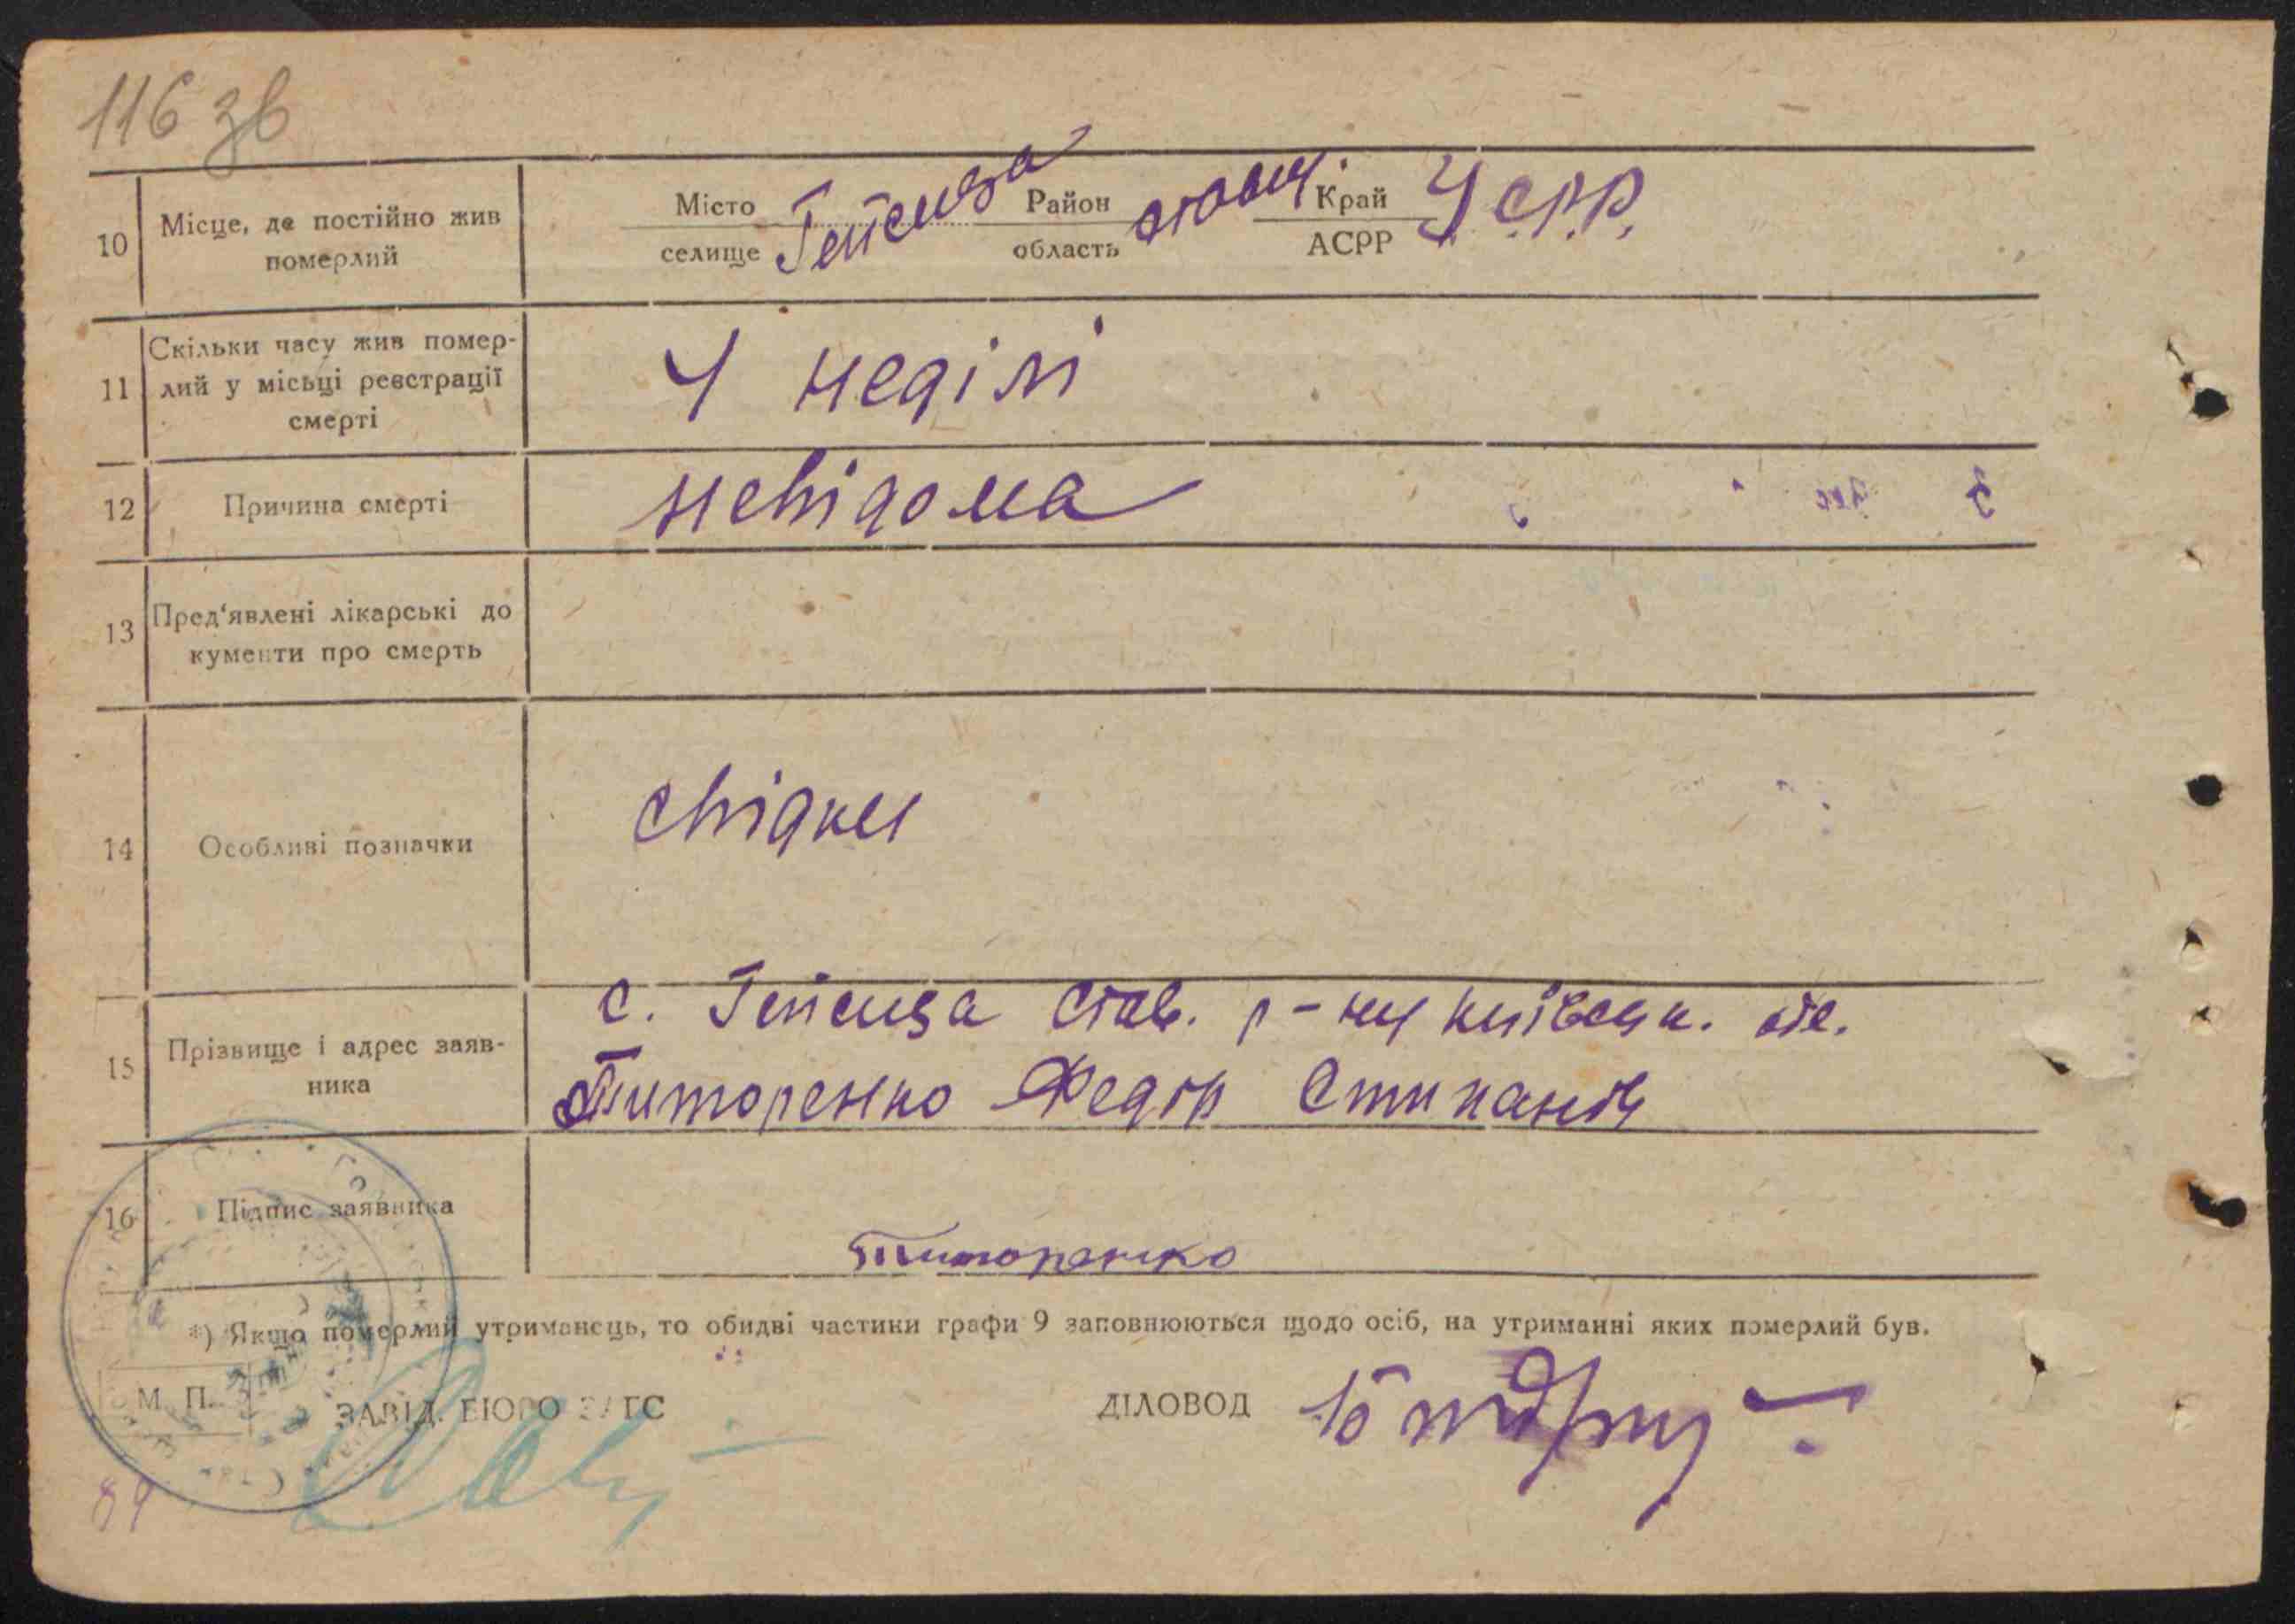 116 зв
10 Місце, де постійно жив померлий
Місто селище Гейсиха Район область ставищ. Край АСРР УСРР.
11 Скільки часу жив помер-
лий у місьці реєстрації
смерті
4 неділі
12 Причина смерті невідома
13 Пред'явлені лікарські до
кументи про смерть
14 Особливі позначки свідки
с. Гейсиха Став. р-ну київськ. обл.
15 Прізвище і адрес заяв-
ника
Титоренко Федір Стипанов
16 Підпис заявника
Титоренко
*) Якщо померлий утриманець, то обидві частини графи 9 заповнюються щодо осіб, на утриманні яких померлий був.
М. П. ЗАВІД. БЮРО ЗАГС ДІЛОВОД
84